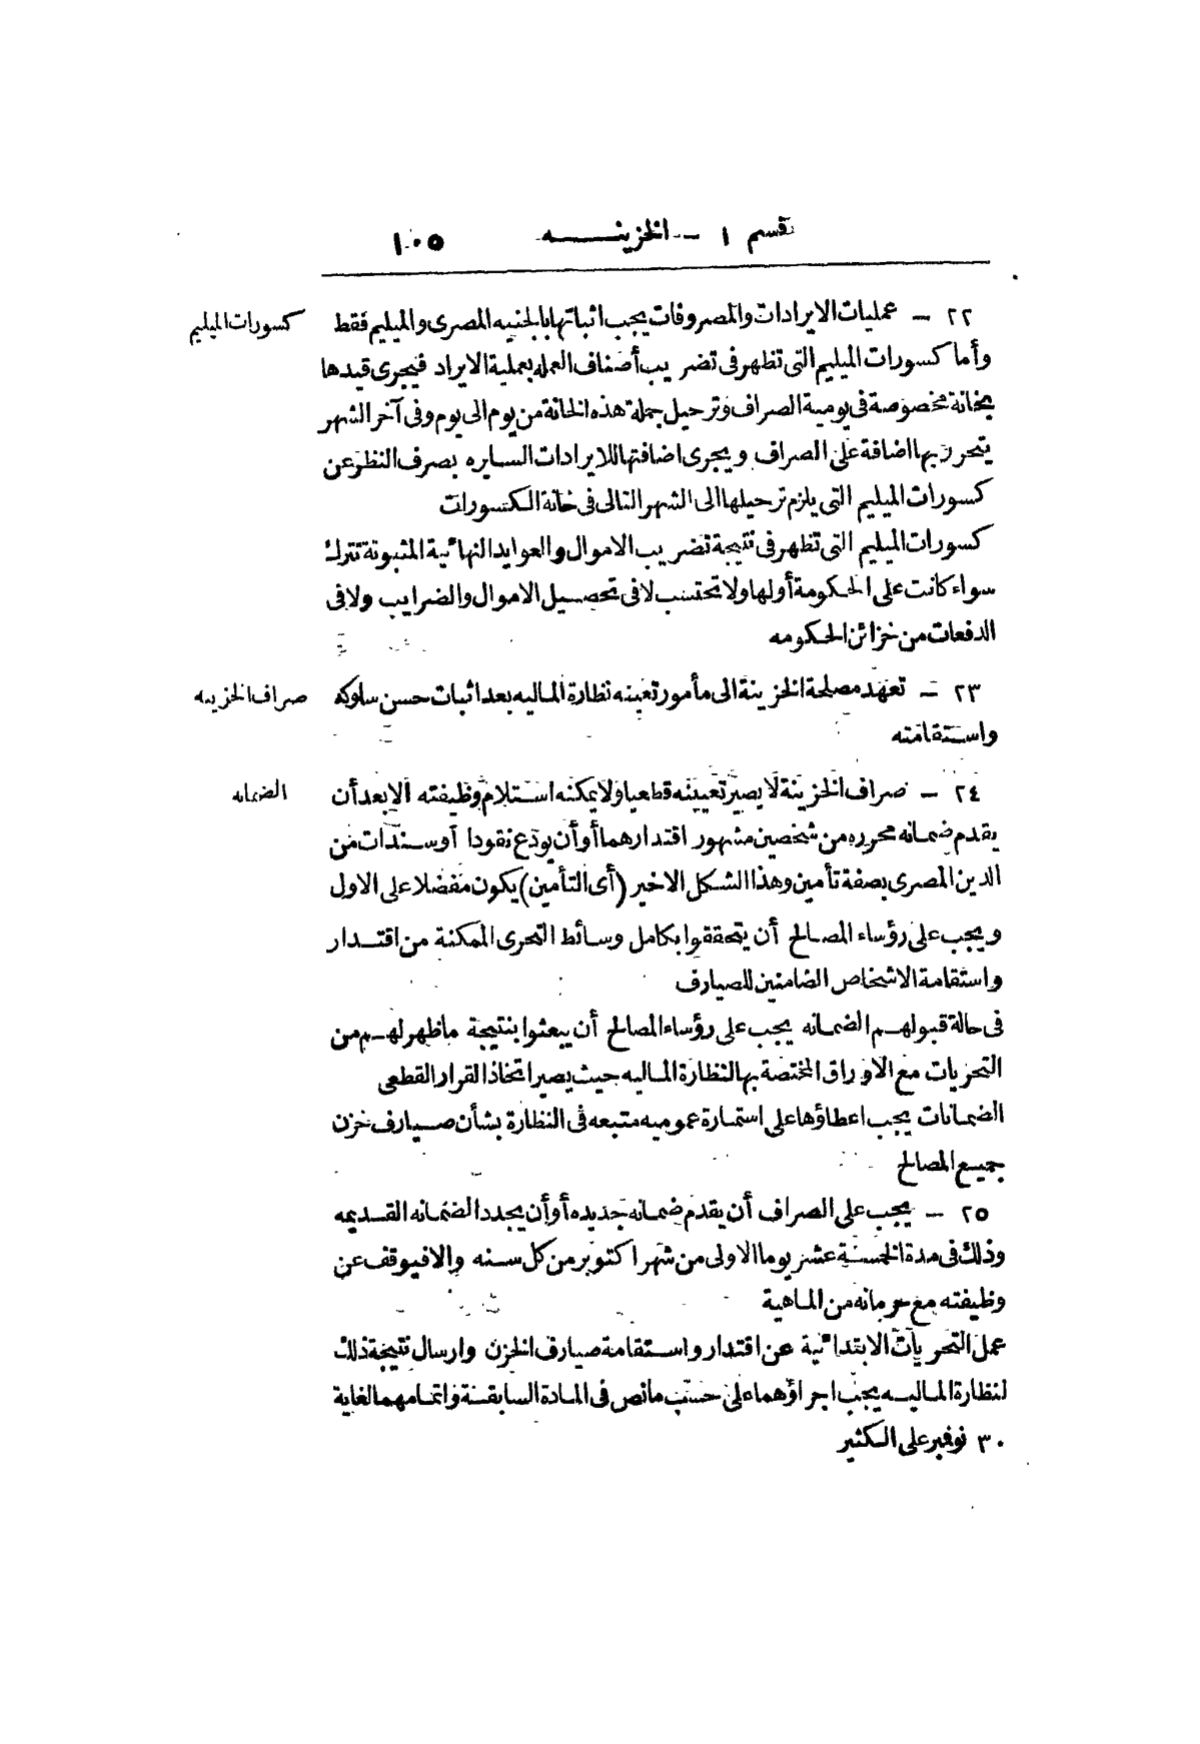 قسم ١ – الخزينه ١٠٥
٢٢ – عمليات الايرادات والمصروفات يجب اثباتها بالجنيه المصرى والميليم فقط كسورات الميليم
وأما كسورات الميليم التى تظهر فى تضريب أصناف العمله بعملية الايراد فيجرى قيدها
بخانة مخصوصة فى يومية الصراف وترحيل جملة هذه الخانة من يوم الى يوم وفى آخر الشهر
يتحرر بها اضافة على الصراف ويجرى اضافتها للايرادات السايره بصرف النظر عن
كسورات الميليم التى يلزم ترحيلها الى الشهر التالى فى خانة الكسورات
كسورات الميليم التى تظهر فى نتيجة تضريب الاموال والعوايد النهائية المثبوتة تترك
سواء كانت على الحكومة أو لها ولا تحتسب لا فى تحصيل الاموال والضرايب ولا فى
الدفعات من خزائن الحكومه
٢٣ – تعهد مصلحة الخزينة الى مأمور تعينه نظارة الماليه بعد اثبات حسن سلوكه صراف الخزينه
واستقامته
٢٤ – صراف الخزينة لا يصير تعيينه قطعيا ولا يمكنه استلام وظيفته الا بعد أن الضمانه
يقدم ضمانه محرره من شخصين مشهور اقتدارهما أو أن يودع نقودا أو سندات من
الدين المصرى بصفة تأمين وهذا الشكل الاخير (أى التأمين) يكون مفضلا على الاول
ويجب على رؤساء المصالح أن يتحققوا بكامل وسائط التحرى الممكنة من اقتدار
واستقامة الاشخاص الضامنين للصيارف
فى حالة قبولهم الضمانه يجب على رؤساء المصالح أن يبعثوا بنتيجة ما ظهر لهم من
التحريات مع الاوراق المختصة بها لنظارة الماليه حيث يصير اتخاذ القرار القطعى
الضمانات يجب اعطاؤها على استمارة عموميه متبعه فى النظارة بشأن صيارف خزن
جميع المصالح
٢٥ – يجب على الصراف أن يقدم ضمانه جديده أو أن يجدد الضمانه القديمه
وذلك فى مدة الخمسة عشر يوما الاولى من شهر اكتوبر من كل سنه والا فيوقف عن
وظيفته مع حرمانه من الماهية
عمل التحريات الابتدائية عن اقتدار واستقامة صيارف الخزن وارسال نتيجة ذلك
لنظارة الماليه يجب اجراؤهما على حسب ما نص فى المادة السابقة واتمامهما لغاية
٣٠ نوفمبر على الكثير